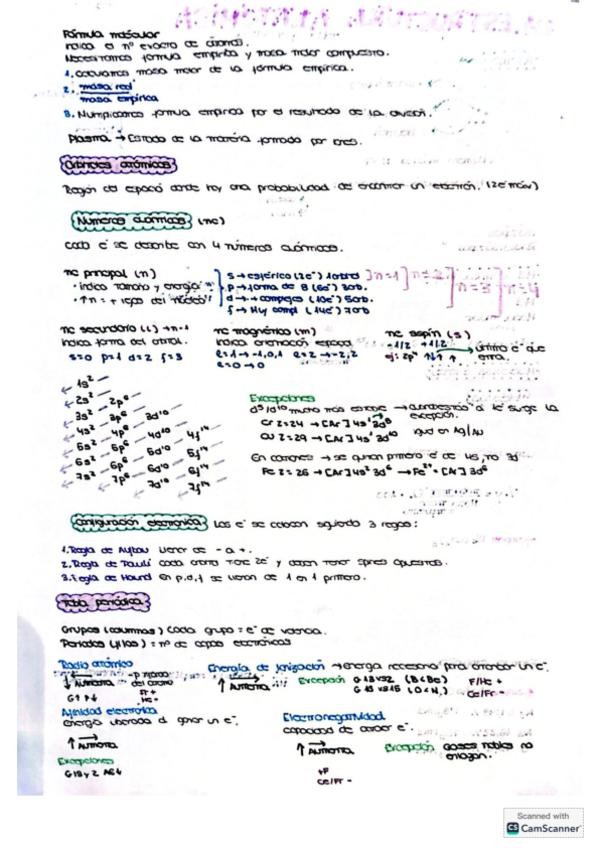 Fórmula molecular
Indica el nº exacto de átomos.
Necesitamos fórmula empírica y masa molar compuesto.
1. Calculamos masa molar de la fórmula empírica.
2. masa real
masa empírica
3. Multiplicamos fórmula empírica por el resultado de la división.
Plasma → Estado de la materia formado por iones.
Orbitales atómicos
Región del espacio donde hay una probabilidad de encontrar un electrón. (2e⁻ máx)
Números cuánticos (nc)
Cada e⁻ se describe con 4 números cuánticos.
nc principal (n)
· indica tamaño y energía
· ↑n = + lejos del núcleo
s → esférico (2e⁻) 1 orbital ] n=1 ] n=2 ] n=3 ] n=4
p → forma de 8 (6e⁻) 3 orb.
d → + complejos (10e⁻) 5 orb.
f → Muy compl (14e⁻) 7 orb
nc secundario (l) → n-1
Indica forma del orbital.
s=0 p=1 d=2 f=3
nc magnético (m)
Indica orientación espacio
l=1 → -1,0,1 l=2 → -2,2
l=0 → 0
nc espín (s)
-1/2 +1/2
último e⁻ que entra.
ej: 2p⁴ ↑↓ ↑ ↑
1s²
2s² 2p⁶
3s² 3p⁶ 3d¹⁰
4s² 4p⁶ 4d¹⁰ 4f¹⁴
5s² 5p⁶ 5d¹⁰ 5f¹⁴
6s² 6p⁶ 6d¹⁰ 6f¹⁴
7s² 7p⁶ 7d¹⁰ 7f¹⁴
Excepciones
d⁵/d¹⁰ mucho más estable → surge la excepción.
Cr Z=24 → [Ar] 4s¹ 3d⁵
Cu Z=29 → [Ar] 4s¹ 3d¹⁰ igual en Ag/Au
En cationes → se quitan primero e⁻ de 4s, no 3d
Fe Z=26 → [Ar] 4s² 3d⁶ → Fe²⁺ = [Ar] 3d⁶
Configuración electrónica Los e⁻ se colocan siguiendo 3 reglas:
1. Regla de Aufbau llenar de - a +.
2. Regla de Pauli cada orbital tiene 2e⁻ y deben tener spines opuestos.
3. Regla de Hound en p,d,f se llenan de 1 en 1 primero.
Tabla periódica
Grupos (columnas) Cada grupo = e⁻ de valencia.
Periodos (filas) = nº de capas electrónicas
Radio atómico
↓ ← Aumenta
G↑ P↓
Fr +
He -
Energía de ionización → energía necesaria para arrancar un e⁻.
↑ → Aumenta
Excepción G13<G2 (B<Be)
G16<G15 (O<N)
F/He +
Cs/Fr -
Afinidad electrónica
energía liberada al ganar un e⁻
↑ → Aumenta
Excepciones
G18 y 2 AE↓
Electronegatividad
capacidad de atraer e⁻.
↑ → Aumenta
+F
Cs/Fr -
Excepción gases nobles no enlazan.
Scanned with
CS CamScanner